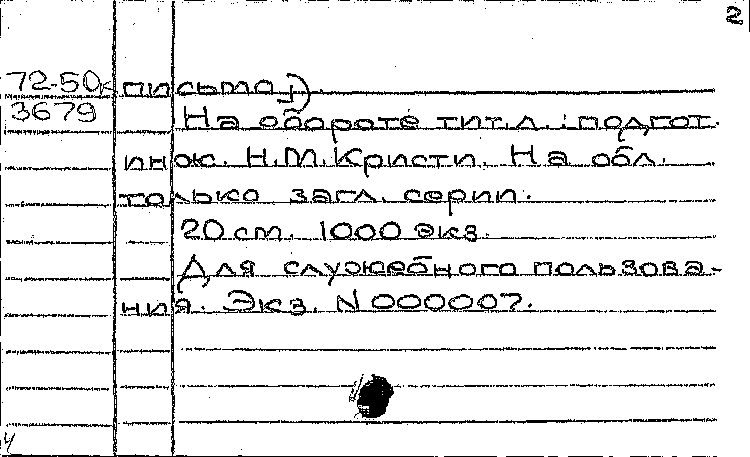 2
72-50к письмо).
3679 На обороте тит.л.: подгот.
инж. Н.М.Кристи. На обл.
только загл. серии.
20 см. 1000 экз.
Для служебного пользова-
ния. Экз. N 000007.